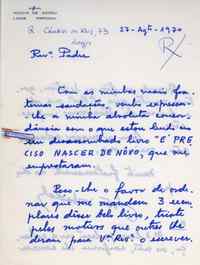 LAGOS PORTUGAL
R. Cândido dos Reis, 73
Lagos
27-Agto-1970
Revº Padre
Com as minhas mais fra-
ternas saudações, venho expressar-
-lhe a minha absoluta concor-
dância com o que estou lendo
em desassombrado livro "É PRE-
CISO NASCER DE NÔVO, que me
emprestaram.
Peço-lhe o favor de orde-
nar que me mandem 3 exem-
plares dêsse belo livro,
pelos motivos que outros lhe
deram para Vª Revª o escrever.